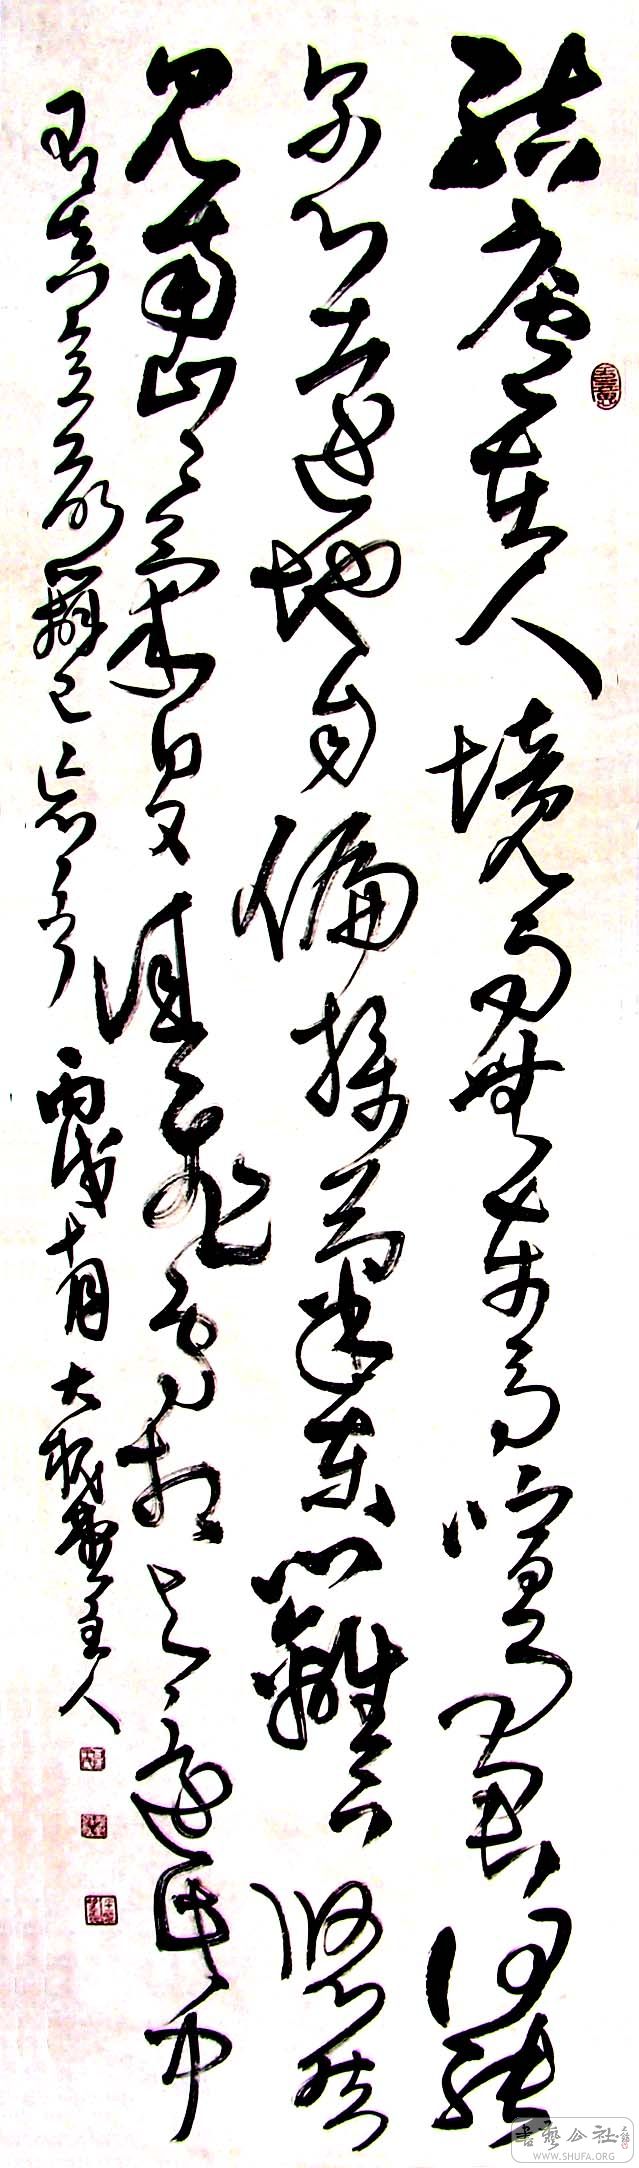 結廬在人境而無車馬喧問君何能
爾心遠地自偏採菊東籬下悠然
見南山〻氣日夕佳飛鳥相与還此中
有真意欲辨已忘言 丙戌十月 大 主人
書藝公社
WWW.SHUFA.ORG